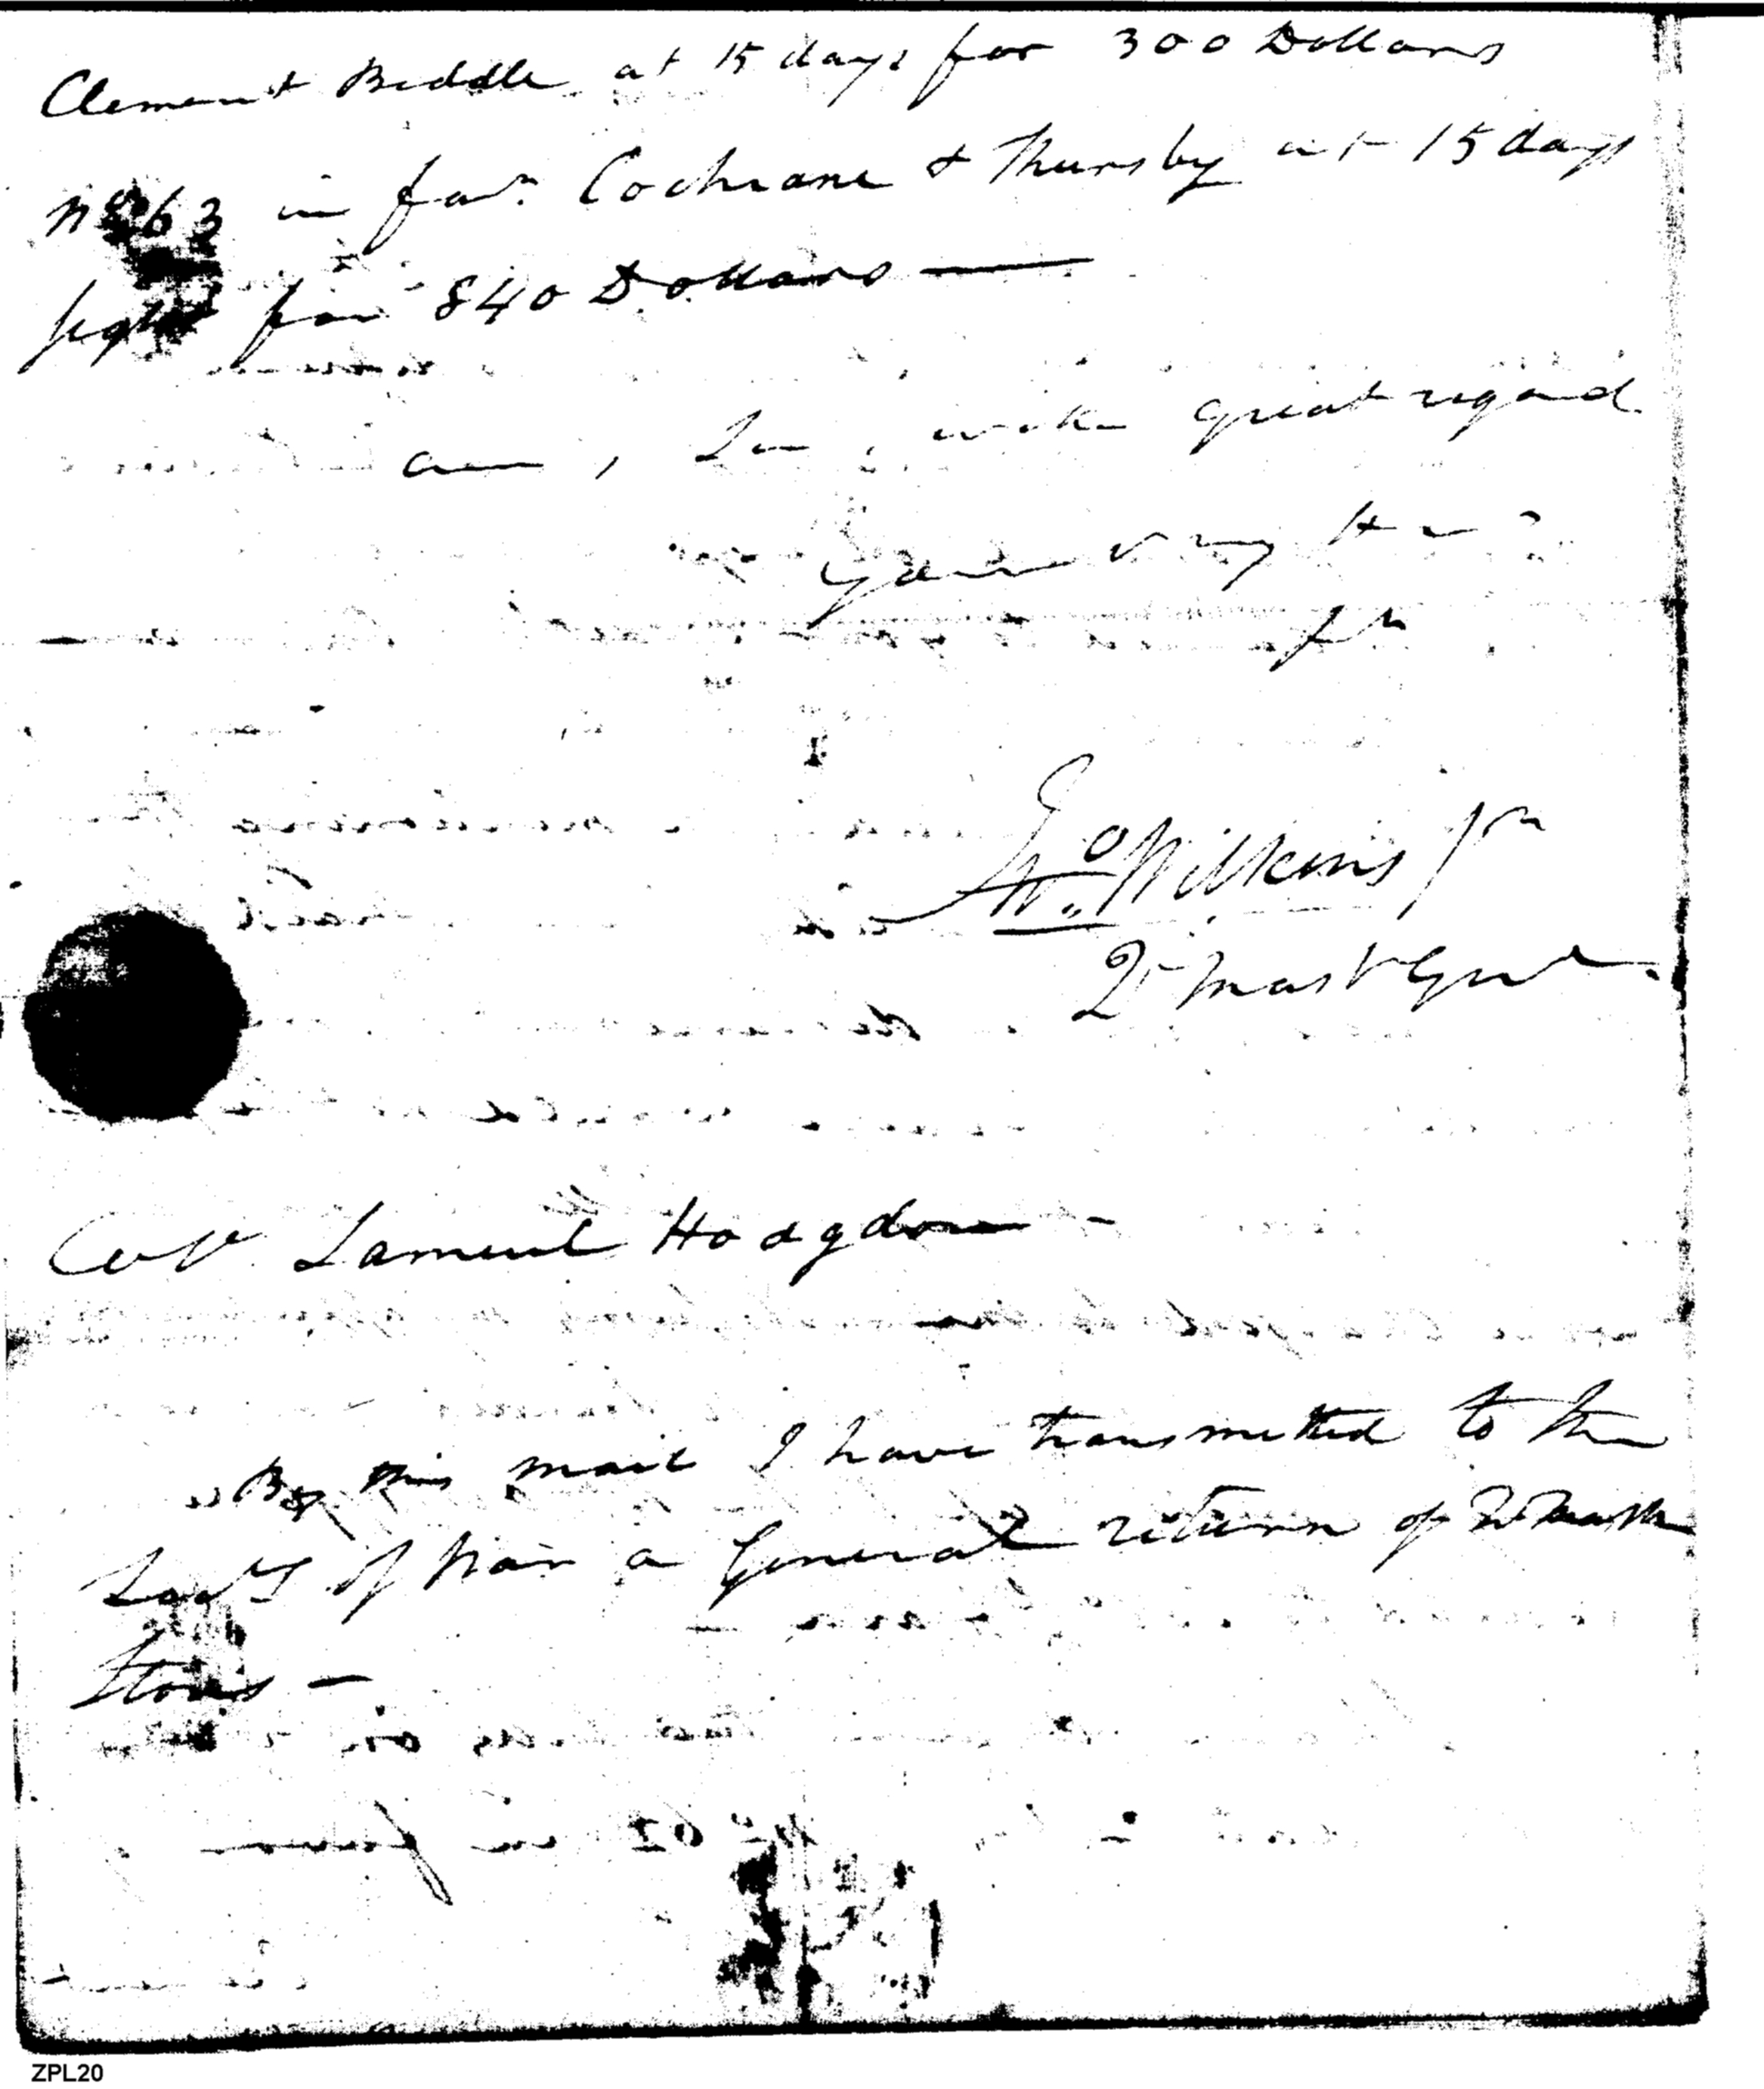 Clement Biddle at 15 days for 300 Dollars
No 63 in favr. Cochrane & Thursby at 15 days
sight for 840 Dollars —
am, Sir, with great regard
Your very Hu
St
Jno Wilkins Jr
Qr Mastr Genl.
Colo. Samuel Hodgdon -
By this mail I have transmitted to the
Secty of War a General return of Qr Mastr
Stores -
ZPL20